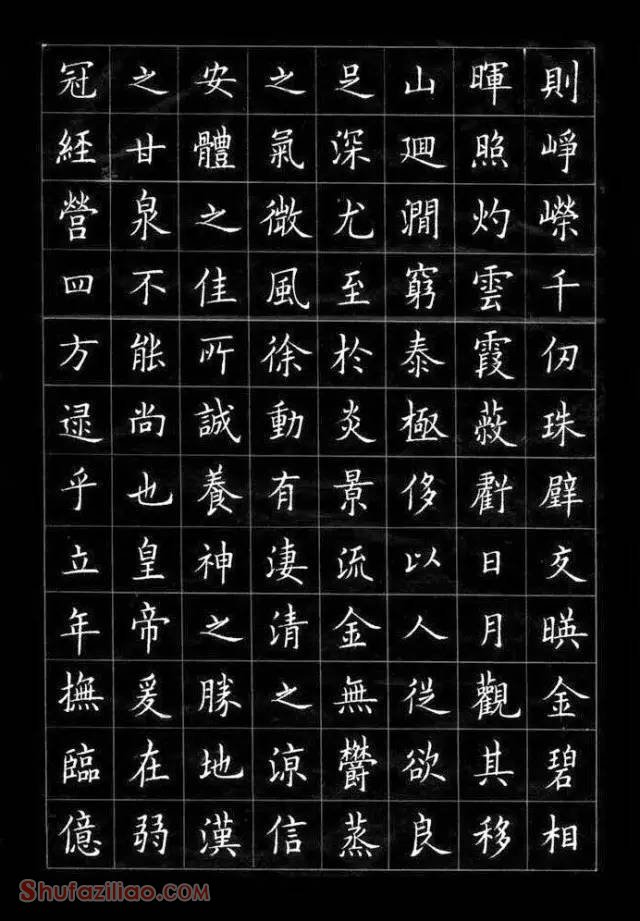 則崢嶸千仞珠壁交暎金碧相
暉照灼雲霞蔽虧日月觀其移
山迴澗窮泰極侈以人從欲良
足深尤至於炎景流金無欝蒸
之氣微風徐動有淒清之涼信
安體之佳所誠養神之勝地漢
之甘泉不能尚也皇帝爰在弱
冠經營四方逮乎立年撫臨億
Shufaziliao.COM